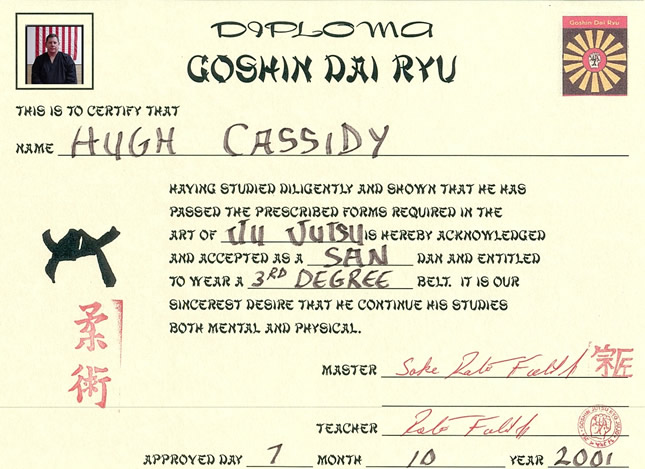 DIPLOMA
GOSHIN DAI RYU
Goshin Dai Ryu
THIS IS TO CERTIFY THAT
NAME HUGH CASSIDY
HAVING STUDIED DILIGENTLY AND SHOWN THAT HE HAS
PASSED THE PRESCRIBED FORMS REQUIRED IN THE
ART OF JU JUTSU IS HEREBY ACKNOWLEDGED
AND ACCEPTED AS A SAN DAN AND ENTITLED
TO WEAR A 3RD DEGREE BELT. IT IS OUR
SINCEREST DESIRE THAT HE CONTINUE HIS STUDIES
BOTH MENTAL AND PHYSICAL.
柔術
MASTER Soke
TEACHER
APPROVED DAY 7 MONTH 10 YEAR 2001